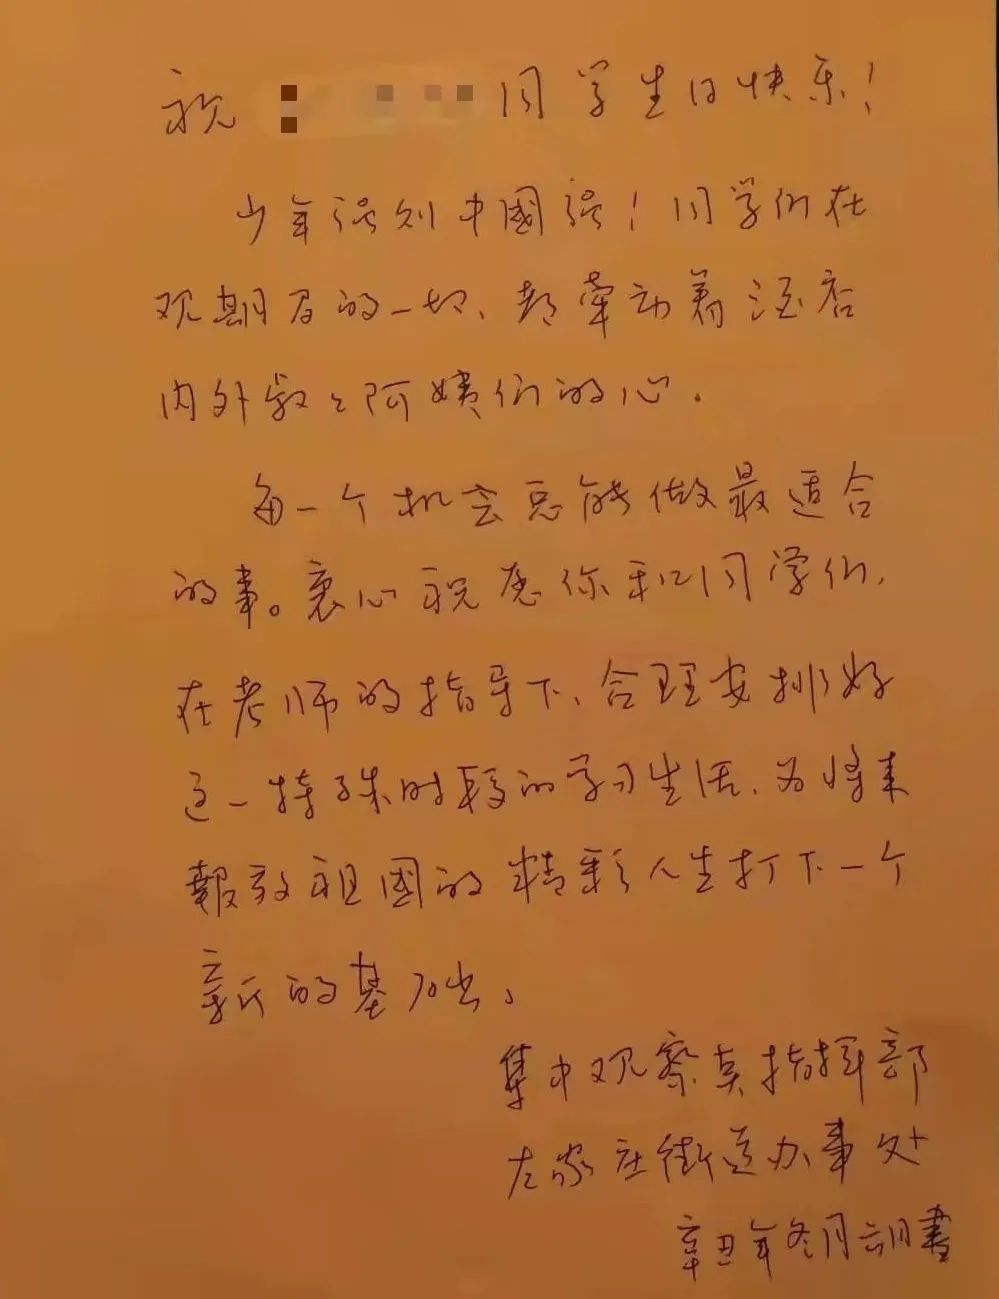 祝 同学生日快乐！
少年强则中國强！同学们在
观期间的一切、都牵动着酒店
内外叔叔阿姨们的心．
每一个机会总能做最适合
的事。衷心祝愿你和同学们，
在老师的指导下、合理安排好
这一特殊时段的学习生活、为将来
報效祖國的精彩人生打下一个
新的基础。
集中观察点指挥部
左家庄街道办事处
辛丑年冬月 書